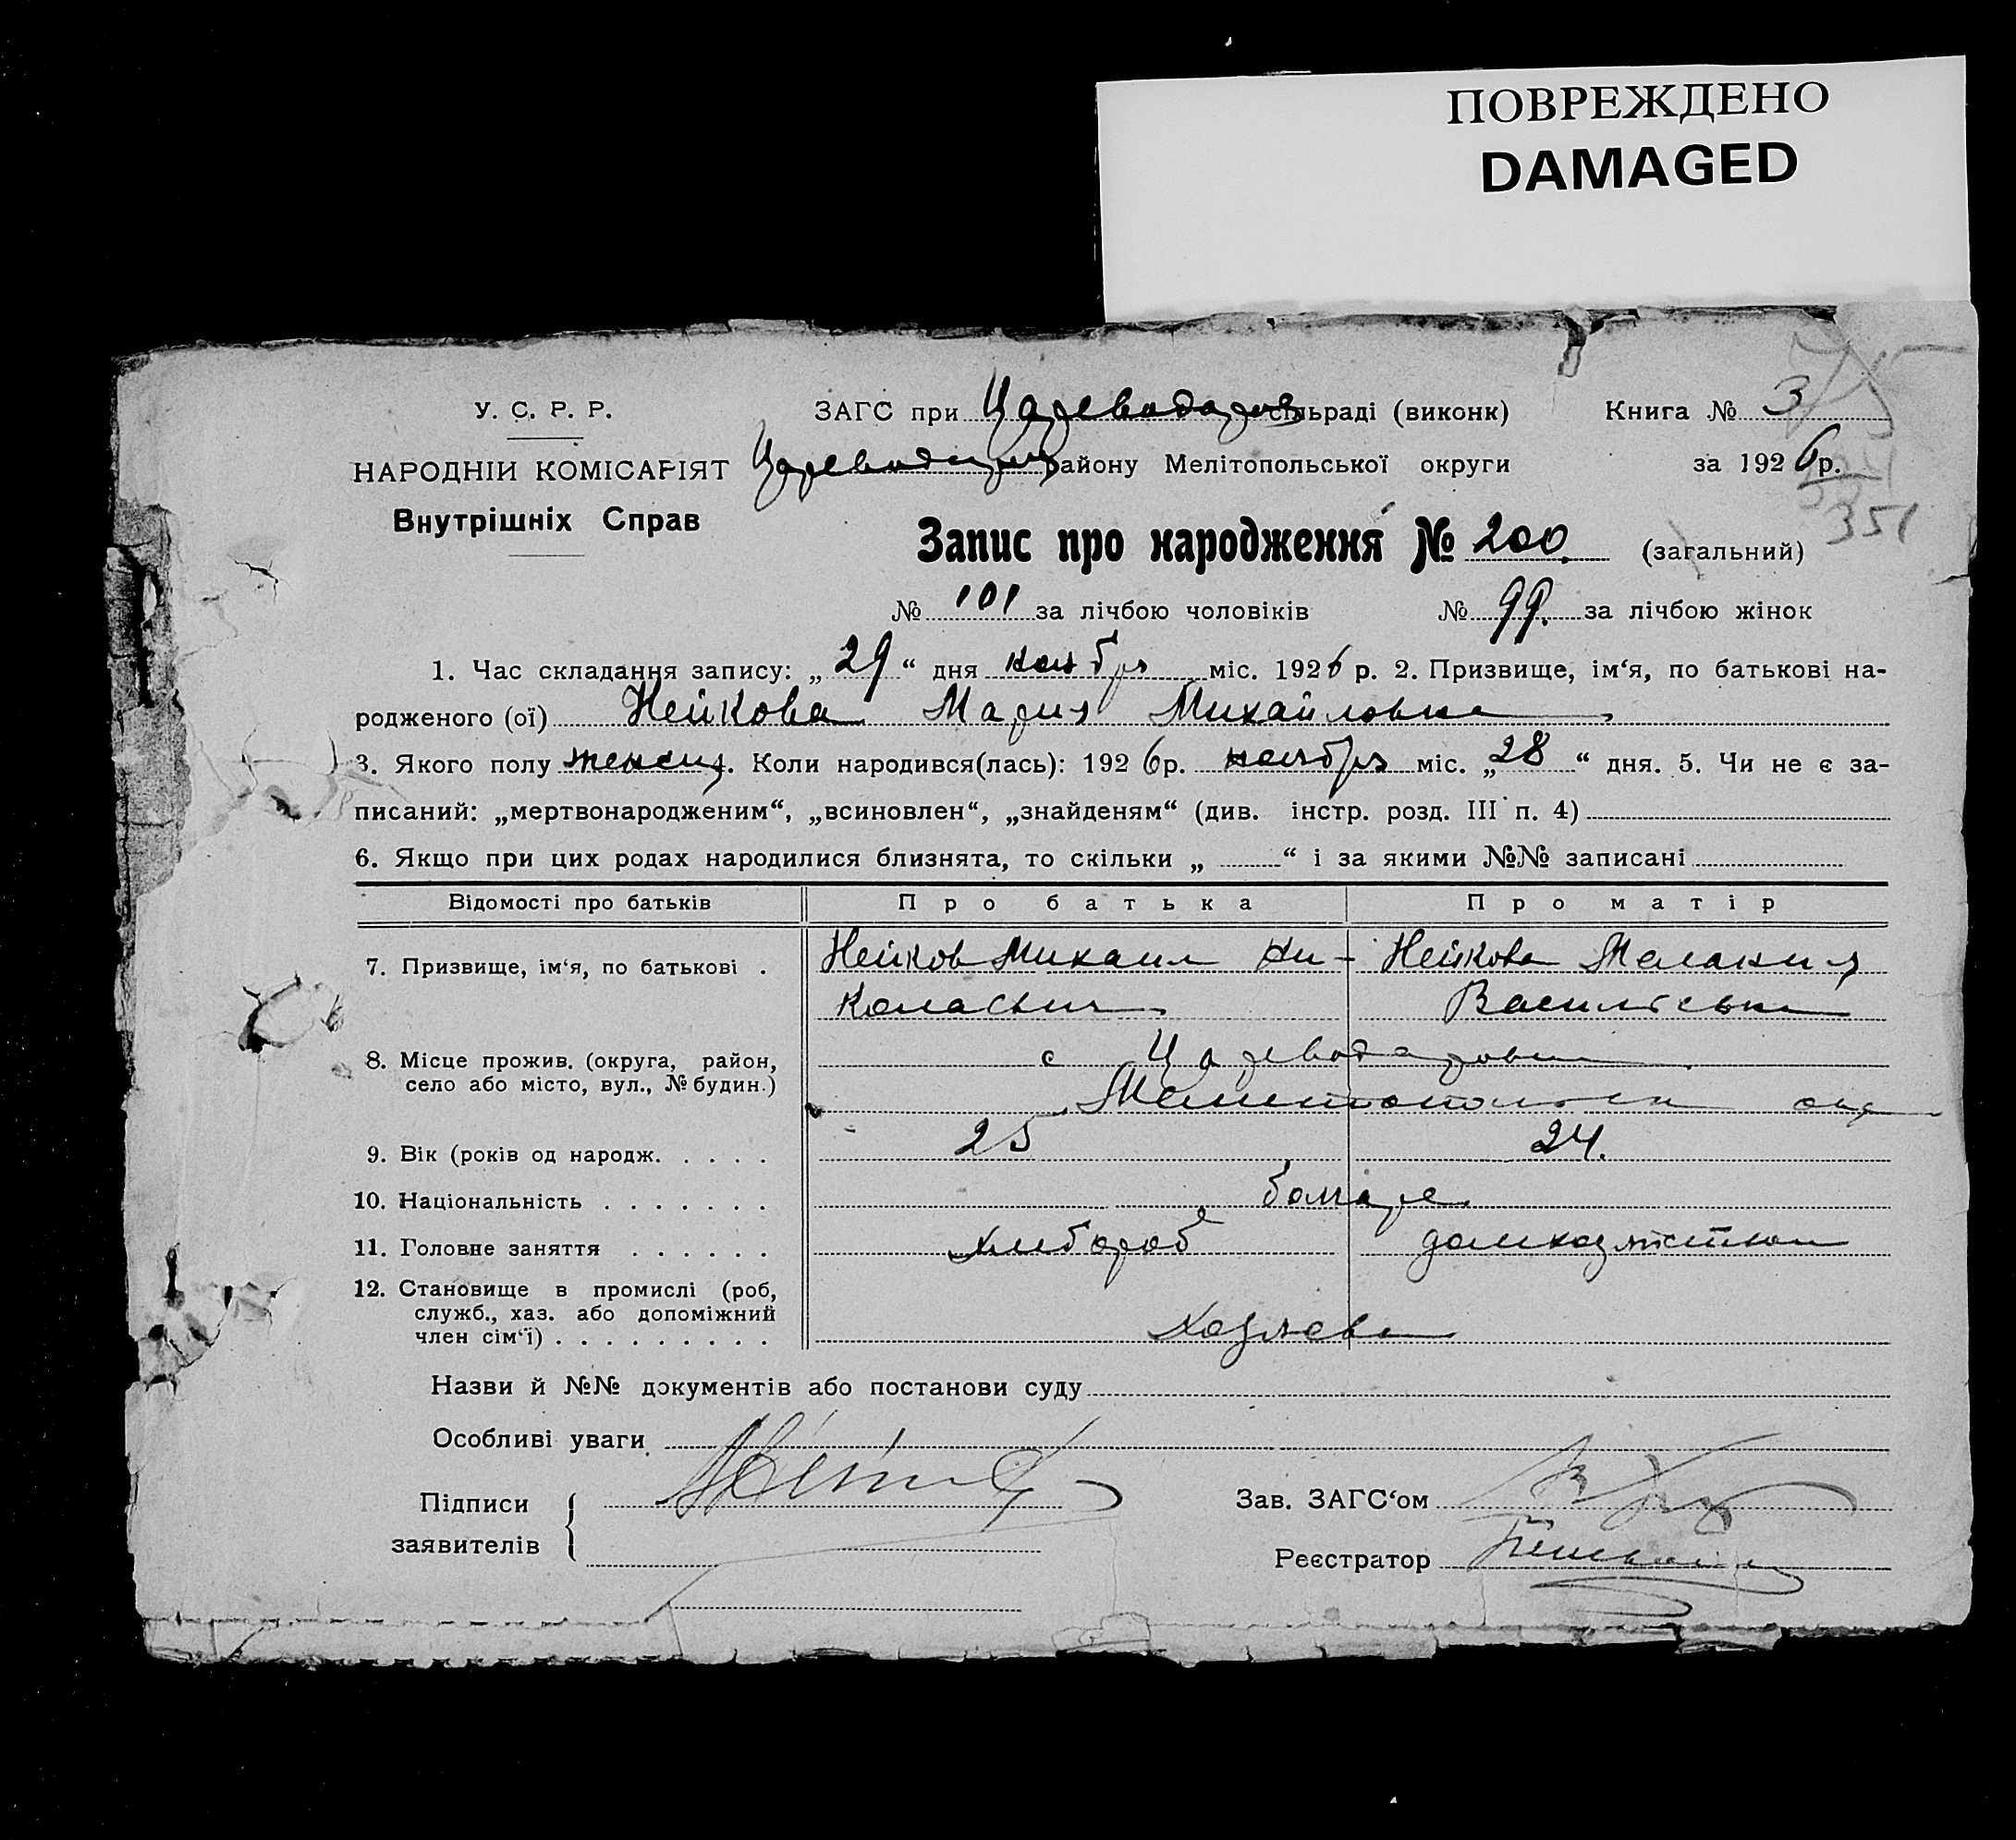 ПОВРЕЖДЕНО
DAMAGED
У. С. Р. Р.
ЗАГС при Цареводаров сільраді (виконк) Книга № 3
НАРОДНІЙ КОМІСАРІЯТ Цареводаров району Мелітопольської округи за 1926 р.
351
Внутрішніх Справ
Запис про народження № 200 (загальний)
№ 101 за лічбою чоловіків № 99. за лічбою жінок
1. Час складання запису: „29“ дня ноября міс. 1926 р. 2. Призвище, ім‘я, по батькові на-
родженого (ої) Нейкова Мария Михайловна
3. Якого полу женск. Коли народився(лась): 1926 р. ноября міс. „28“ дня. 5. Чи не є за-
писаний: „мертвонародженим“, „всиновлен“, „знайденям“ (див. інстр. розд. III п. 4)
6. Якщо при цих родах народилися близнята, то скільки „ “ і за якими №№ записані
Відомості про батьків Про батька Про матір
7. Призвище, ім‘я, по батькові . Нейков Михаил Ни- Нейкова Малания
колаевич Васильевна
8. Місце прожив. (округа, район, с Цареводаровка
село або місто, вул., № будин.) Мелитопольск окр
9. Вік (років од народж. . . . . 25 24.
10. Національність . . . . . . . болгаре
11. Головне заняття . . . . . . хлибороб домхозяйство
12. Становище в промислі (роб,
служб., хаз. або допоміжний
член сім‘ї) . . . . . . . . . хозяева
Назви й №№ документів або постанови суду
Особливі уваги
Підписи Зав. ЗАГС‘ом
заявителів Реєстратор